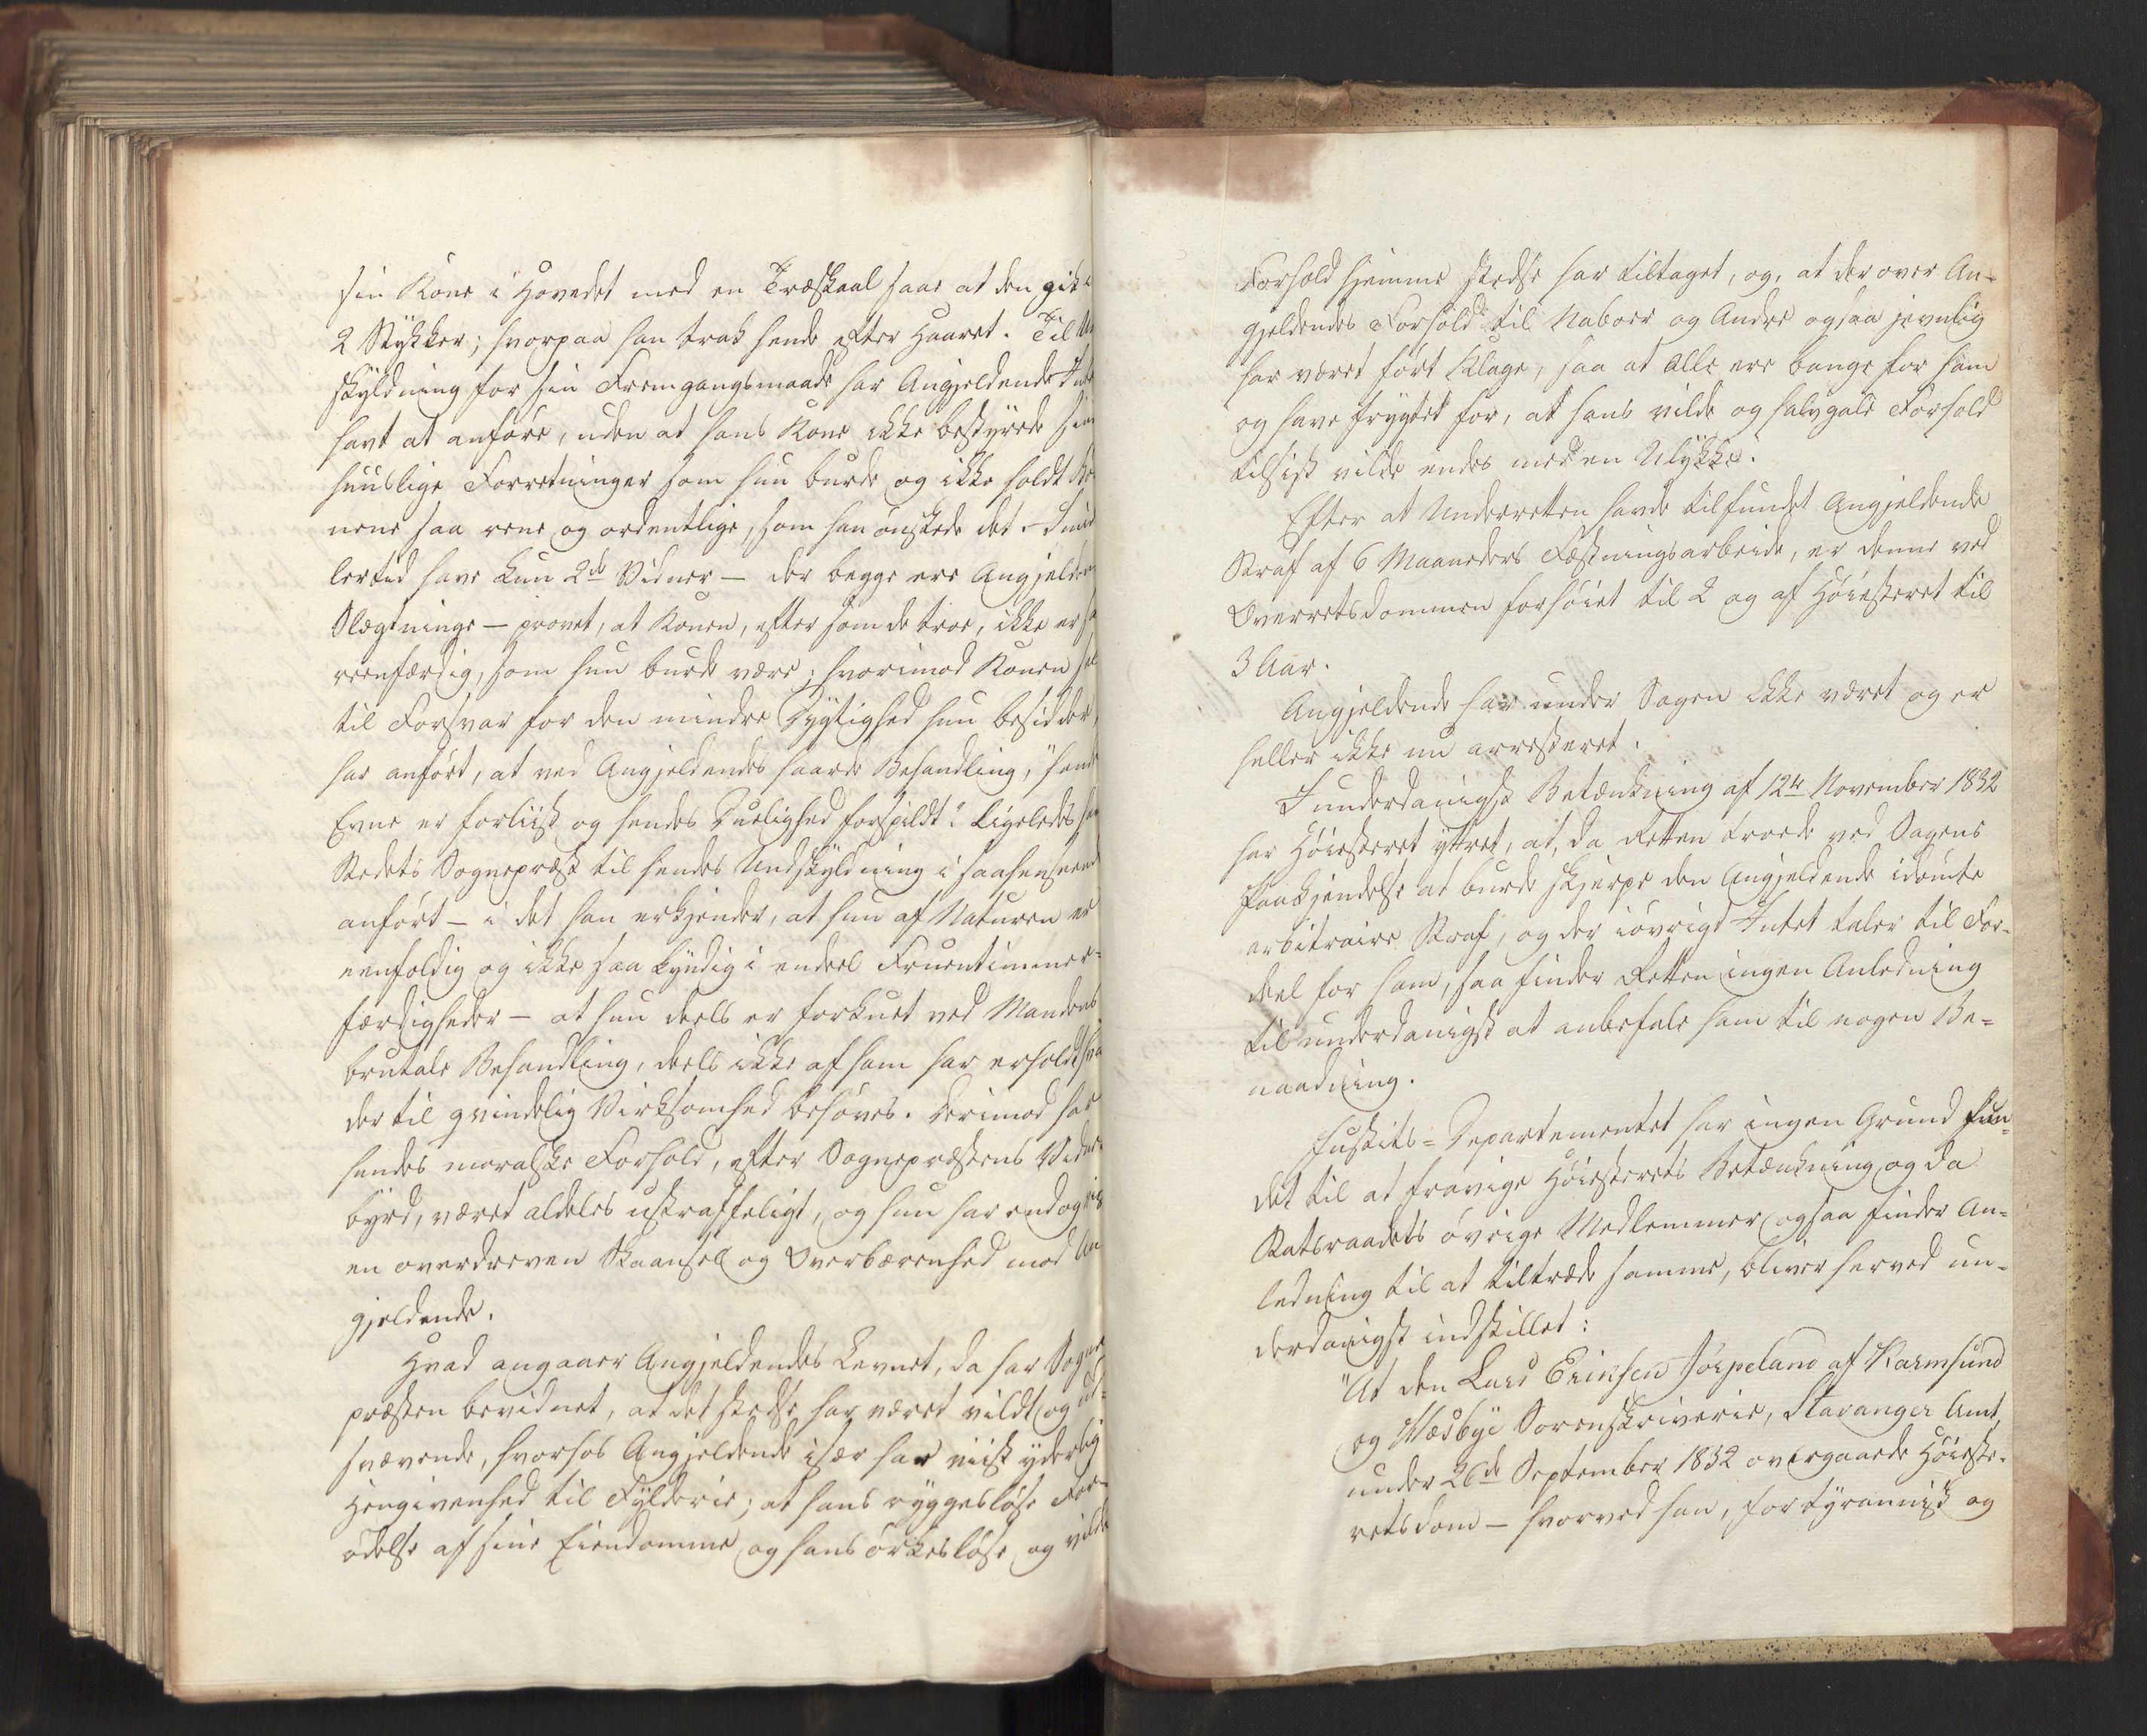 sin Kone i Hovedet med en Træskaal saae at den gik i
2 Stykker; hvorpaa han trak hende efter Haaret. Til Und
skyldning for sin Fremgangsmaade har Angjeldende Intet
havt at anføre, uden at hans Kone ikke bestyrede sine
huuslige Forretninger som hun burde og ikke holdt Bør
nene saa rene og ordentlige, som han ønskede det. Imid
lertid have kun 2de Vidner — der begge ere Angjeldendes
Slægtninge — provet, at Konen, efter som de troe, ikke er saa
reenfærdig, som hun burde være; hvorimod Konen selv
til Forsvar for den mindre Dygtighed hun besidder,
har anført, at ved Angjeldendes haarde Behandling, "hendes
Evne er forliist og hendes Duelighed forspildt". Ligeledes har
Stedets Sognepræst til hendes Undskyldning i saahenseende
anført — i det han erkjender, at hun af Naturen er
eenfoldig og ikke saa kyndig i endeel Fruentimmer-
færdigheder — at hun deels er forkuet ved Mandens
brutale Behandling, deels ikke af ham har erholdt hvad
der til qvindelig Virksomhed behøves. Derimod har
hendes moralske Forhold, efter Sognepræstens Vidnes
byrd, været aldeles ustraffeligt, og hun har endog viist
en overdreven Skaansel og Overbærenhed mod An
gjeldende.
Hvad angaaer Angjeldendes Levnet, da har Sogne
præsten bevidnet, at det stedse har været vildt og ud-
svævende, hvorhos Angjeldende især har viist yderlig
Hengivenhed til Fylderie; at hans ryggesløse For-
ødelse af sine Eiendomme og hans ørkesløse og vilde
Forhold hjemme stedse har tiltaget, og, at der over An-
gjeldendes Forhold til Naboer og Andre ogsaa jevnlig
har været ført Klage, saa at alle ere bange for ham
og have frygtet for, at hans vilde og halvgale Forhold
tilsidst vilde endes med en Ulykke.
Efter at Underretten havde tilfundet Angjeldende
Straf af 6 Maaneders Fæstningsarbeide, er denne ved
Overretsdommen forhøiet til 2 og af Høiesteret til
3 Aar.
Angjeldende har under Sagen ikke været og er
heller ikke nu arresteret.
I underdanigst Betænkning af 12te November 1832
har Høiesteret yttret, at, da Retten troede ved Sagens
Paakjendelse at burde skjerpe den Angjeldende idømte
arbitraire Straf, og der iøvrigt Intet taler til For-
deel for ham, saa finder Retten ingen Anledning
til underdanigst at anbefale ham til nogen Be-
naadning.
Justits-Departementet har ingen Grund fun-
det til at fravige Høiesterets Betænkning, og da
Statsraadets øvrige Medlemmer ogsaa finder An-
ledning til at tiltræde samme, bliver herved un-
derdanigst indstillet:
"At den Lars Erichsen Jørpeland af Karmsund
og Hesbye Sorenskriverie, Stavanger Amt,
under 26de September 1832 overgaaede Høieste-
retsdom — hvorved han, for tyrannisk og